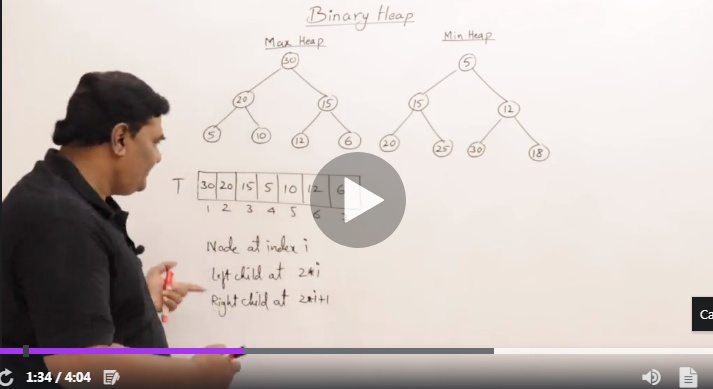 Binary Heap
Max Heap
Min Heap
30
5
20
15
15
12
5
10
12
6
20
25
30
18
T 30 20 15 5 10 12 6
1 2 3 4 5 6
Node at index i
Left child at 2*i
Right child at 2*i+1
Ca
1:34 / 4:04